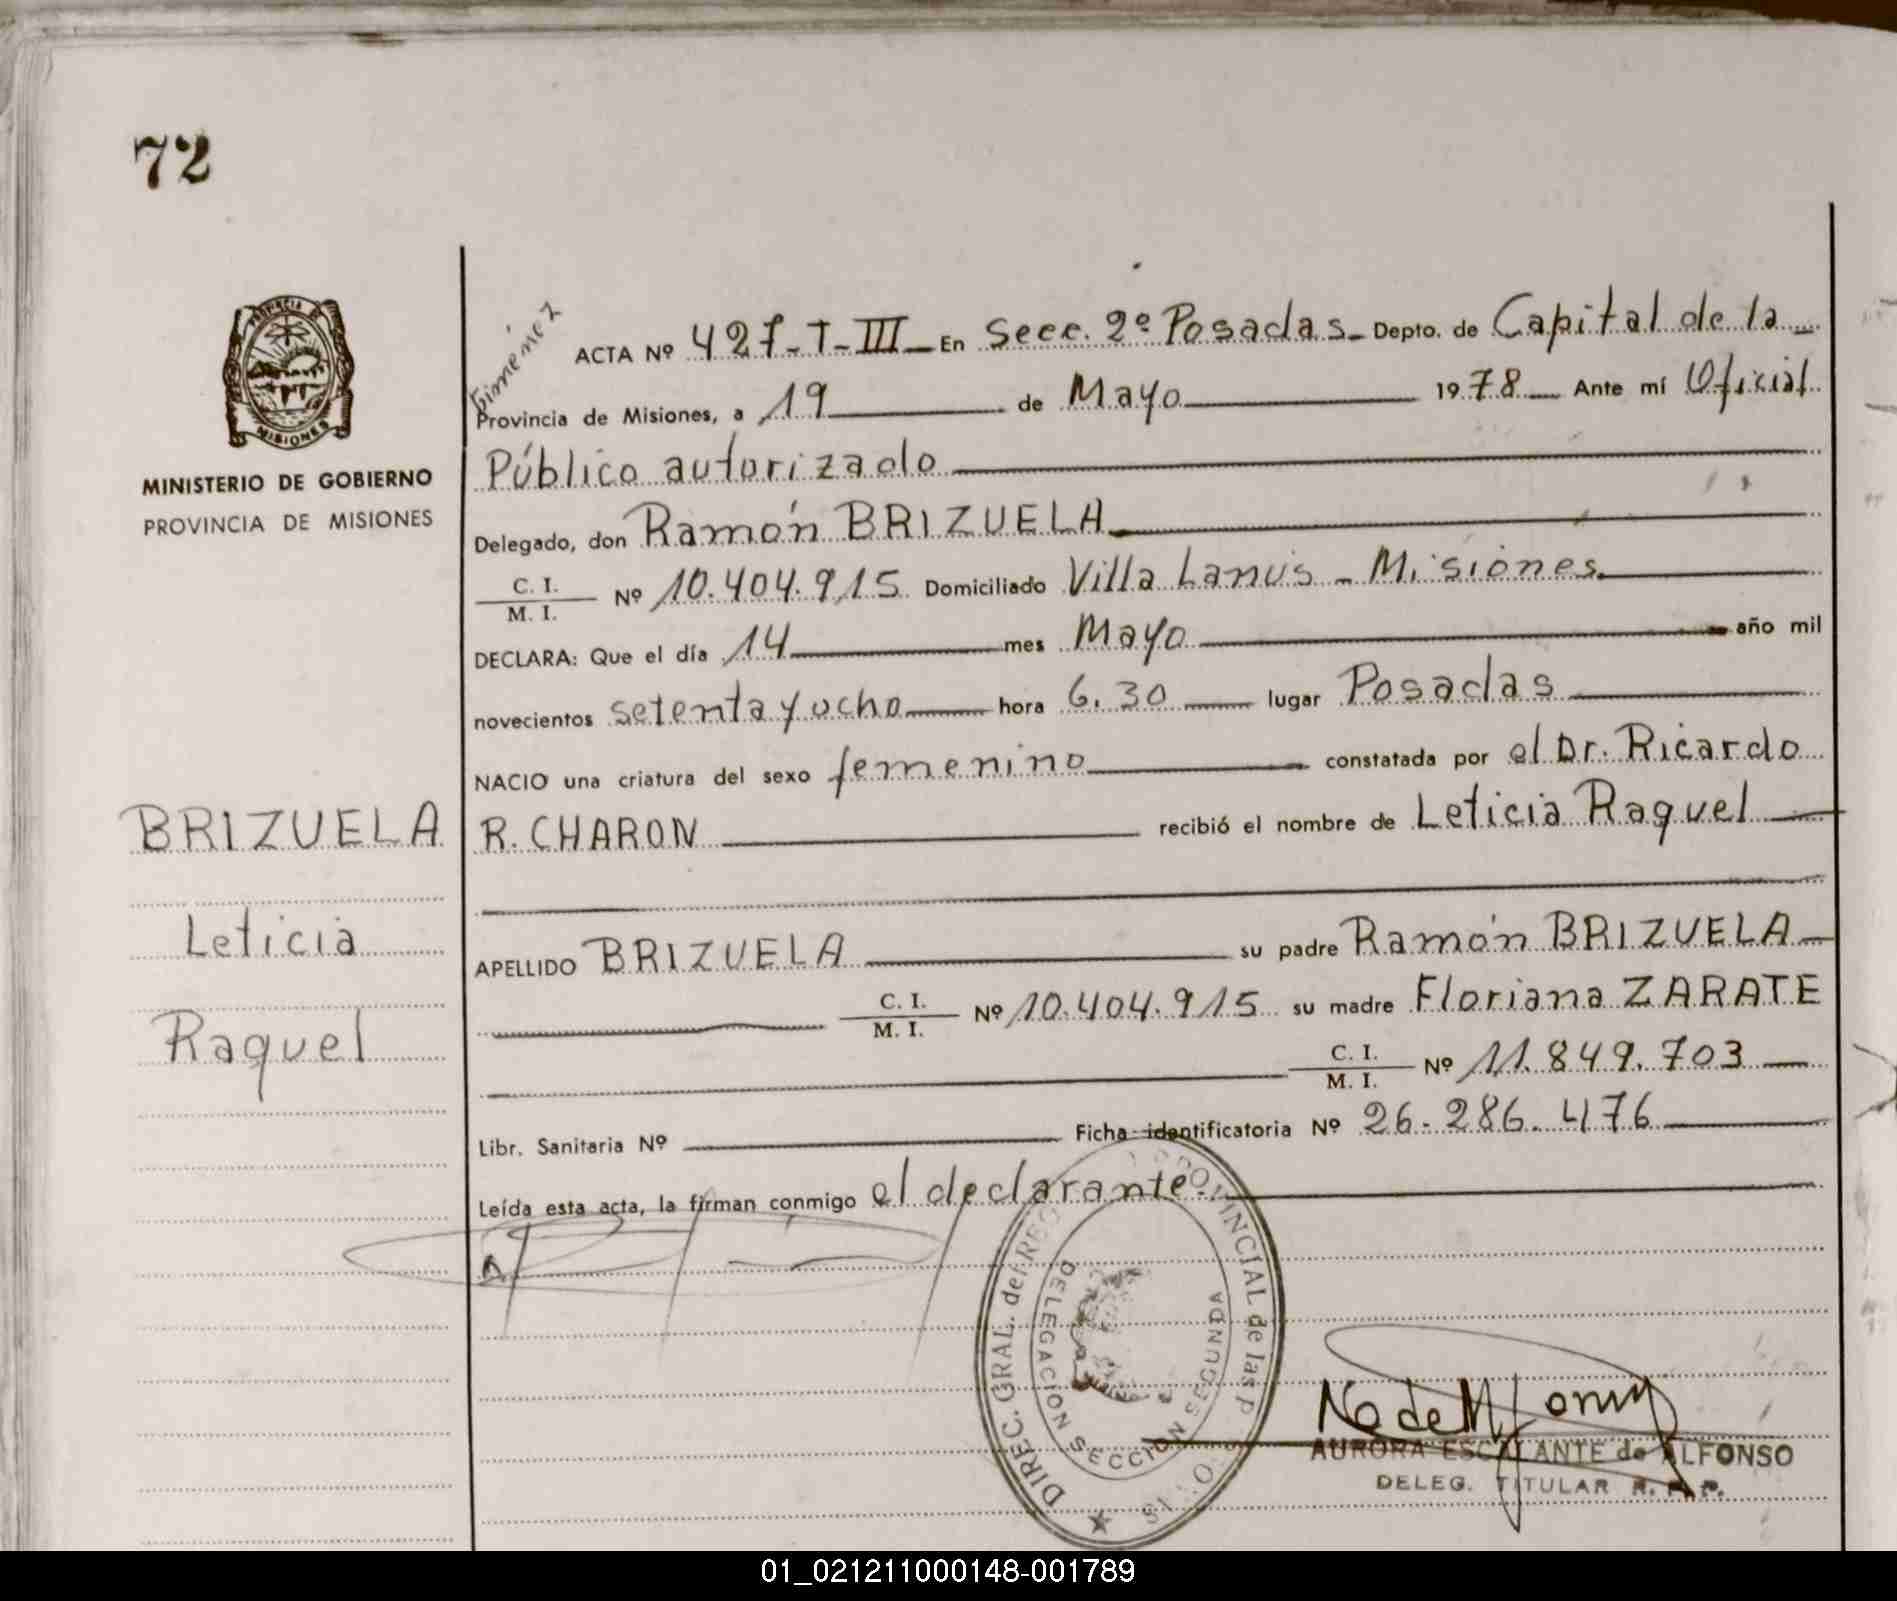 72
PROVINCIA DE
MISIONES
MINISTERIO DE GOBIERNO
PROVINCIA DE MISIONES
BRIZUELA
Leticia
Raquel
Gimenez
ACTA Nº 427-T-III- En Secc. 2º Posadas- Depto. de Capital de la
Provincia de Misiones, a 19 de Mayo 1978 Ante mí Oficial
Público autorizado
Delegado, don Ramón BRIZUELA
C. I.
M. I. Nº 10.404.915 Domiciliado Villa Lanús - Misiones.
DECLARA: Que el día 14 mes Mayo año mil
novecientos setenta y ocho hora 6.30 lugar Posadas
NACIO una criatura del sexo femenino constatada por el Dr. Ricardo
R. CHARON recibió el nombre de Leticia Raquel
APELLIDO BRIZUELA su padre Ramón BRIZUELA
C. I.
M. I. Nº 10.404.915 su madre Floriana ZARATE
C. I.
M. I. Nº 11.849.703
Libr. Sanitaria Nº Ficha identificatoria Nº 26.286.476
Leída esta acta, la firman conmigo el declarante.
DIREC. GRAL. del REG PROVINCIAL de las P
DELEGACION SECCION SEGUNDA
AURORA ESCALANTE de ALFONSO
DELEG. TITULAR R. P. P.
01_021211000148-001789